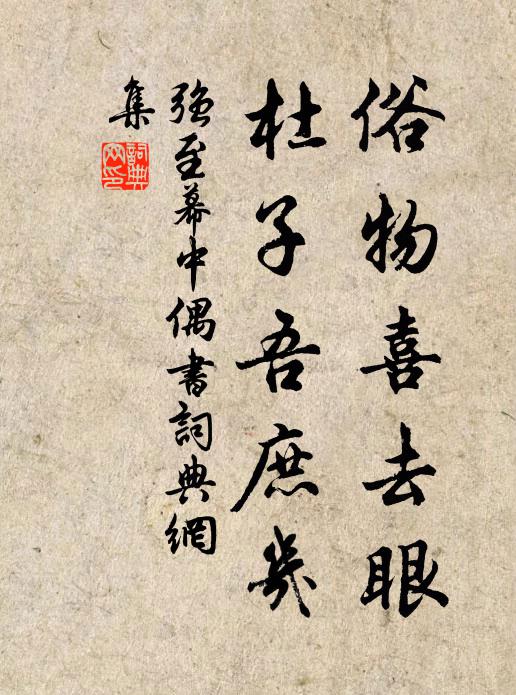 俗物喜去眼
杜子吾庶幾
強至幕中偶書詞典網
集
詞典
網印